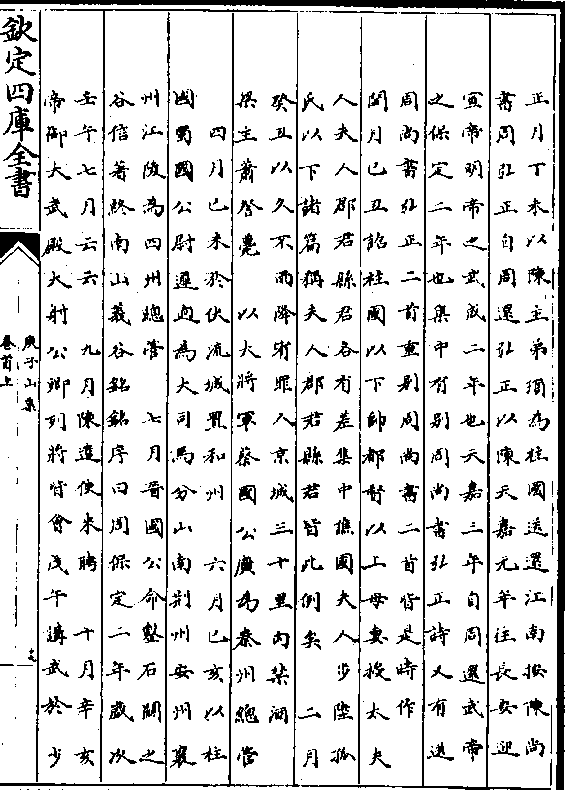 正月丁未以陳主弟頊為柱國送還江南按陳尚
書周弘正自周還弘正以陳天嘉元年往長安迎
宣帝明帝之武成二年也天嘉三年自周還武帝
之保定二年也集中有别周尚書弘正詩又有送
周尚書弘正二首重别周尚書二首皆是時作
閏月己丑詔柱國以下帥都督以上母妻授太夫
人夫人郡君縣君各有差集中譙國夫人步陸孤
氏以下諸篇稱夫人郡君縣君皆此例矣 二月
癸丑以久不雨降宥罪人京城三十里内禁酒
梁主蕭詧薨 以大將軍蔡國公廣為秦州總管
四月己未於伏流城置和州 六月己亥以柱
國蜀國公尉遲迥為大司馬分山南荆州安州襄
州江陵為四州總管 七月晉國公命鑿石關之
谷信著終南山義谷銘銘序曰周保定二年歲次
壬午七月云云 九月陳遣使來聘 十月辛亥
帝御大武殿大射公卿列將皆會戊午講武於少
欽定四庫全書
庾子山集
卷首上